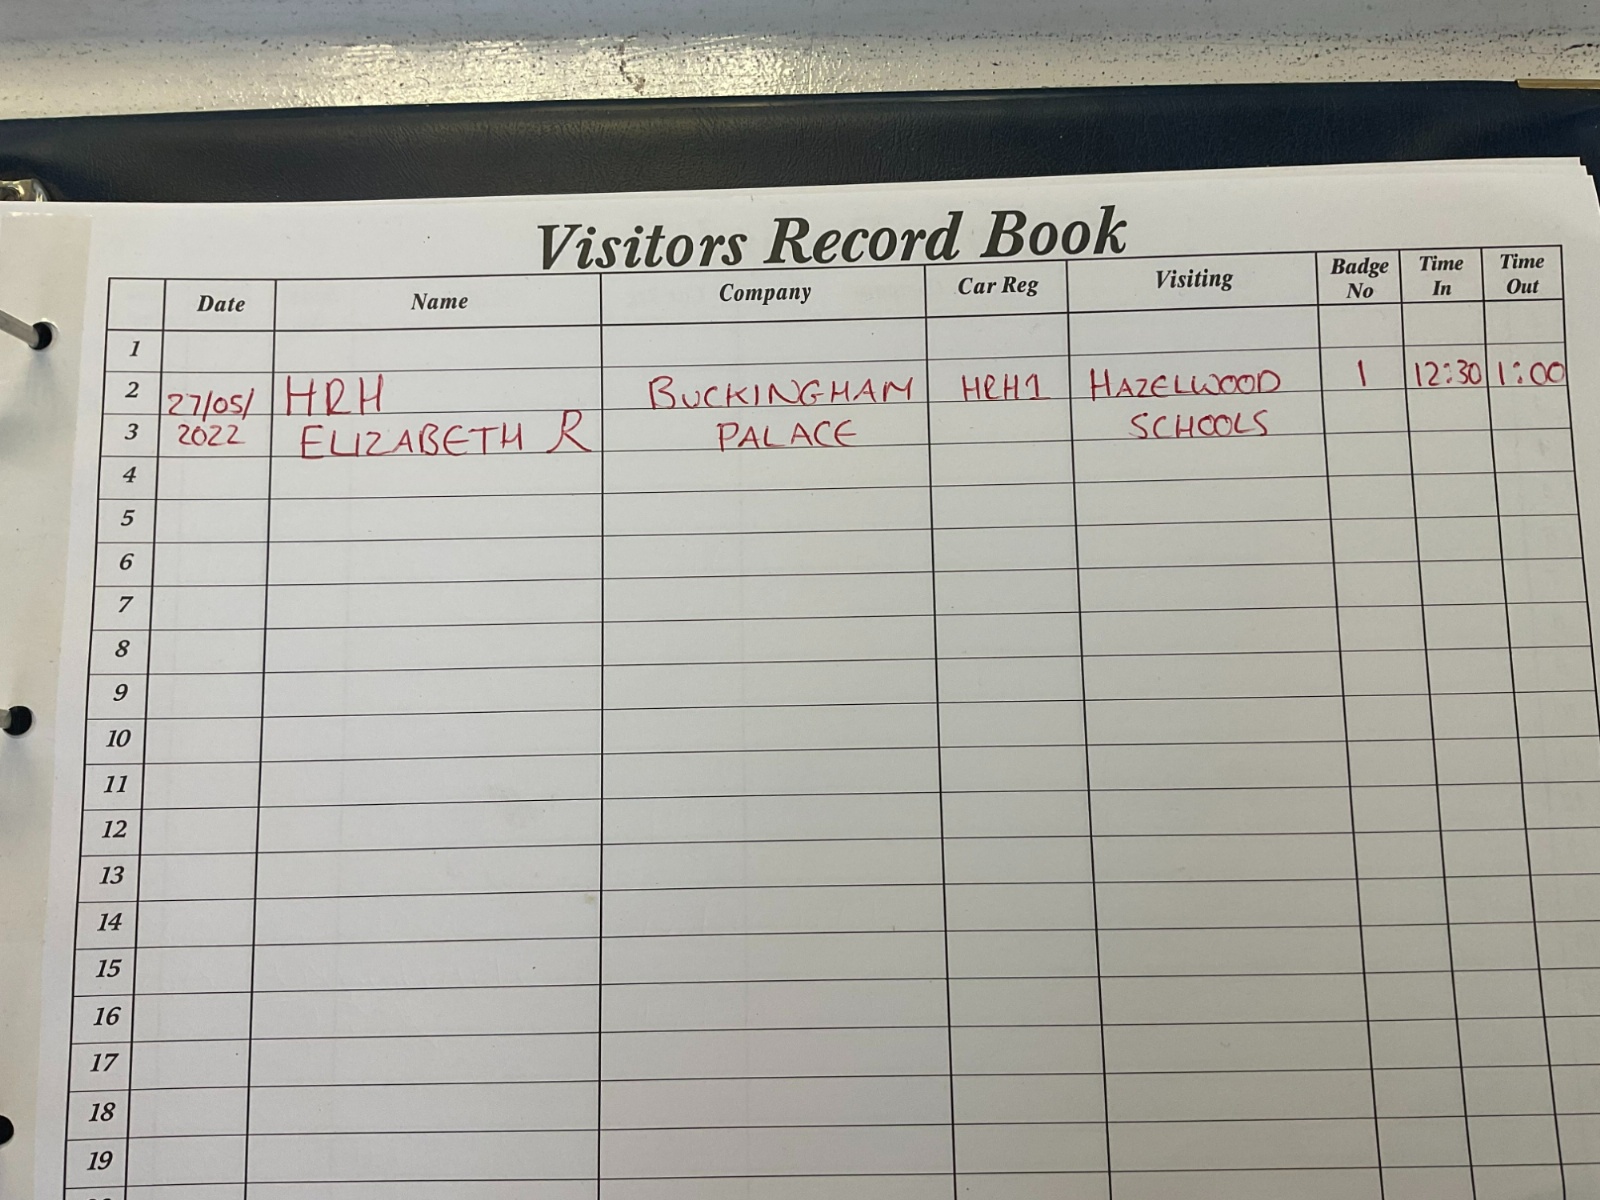 Visitors Record Book
Date Name Company Car Reg Visiting Badge No Time In Time Out
1
2 27/05/ HRH BUCKINGHAM HRH1 HAZELWOOD 1 12:30 1:00
3 2022 ELIZABETH R PALACE SCHOOLS
4
5
6
7
8
9
10
11
12
13
14
15
16
17
18
19